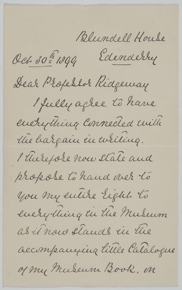 Blundell House
Oct 30th 1899 Edenderry
Dear Professor Ridgeway
I fully agree to have
everything connected with
the bargain in writing.
I therefore now state and
propose to hand over to
you my entire right to
everything in the Museum
as it now stands in the
accompanying little Catalogue
of my Museum Book. in